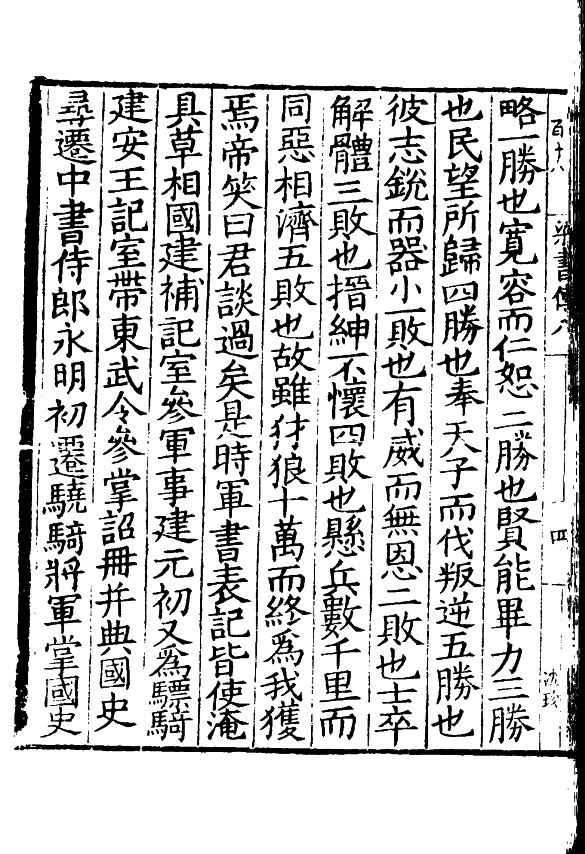 百十八
梁書傳八
四
沈珍
略一勝也寛容而仁恕二勝也賢能畢力三勝
也民望所歸四勝也奉天子而伐叛逆五勝也
彼志銳而器小一敗也有威而無恩二敗也士卒
解體三敗也搢紳不懷四敗也懸兵數千里而無
同惡相濟五敗也故雖犲狼十萬而終爲我獲
焉帝笑曰君談過矣是時軍書表記皆使淹
具草相國建補記室參軍事建元初又爲驃騎
建安王記室帶東武令參掌詔冊并典國史
尋遷中書侍郎永明初遷驍騎將軍掌國史